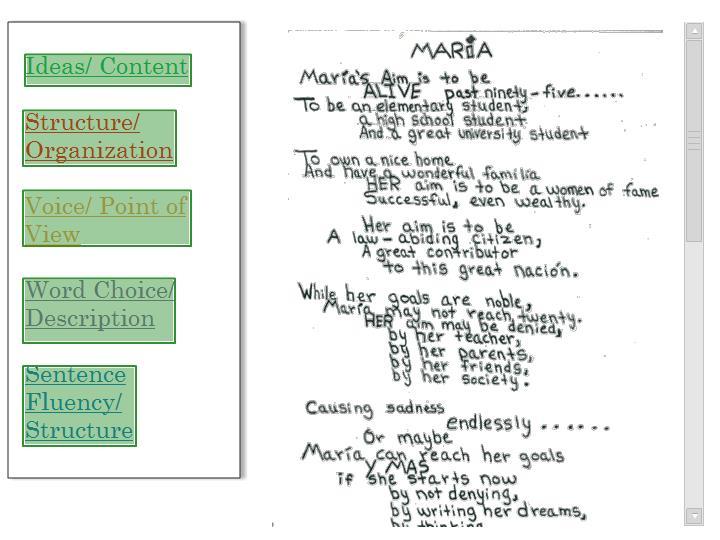 Ideas/ Content
Structure/
Organization
Voice/ Point of
View
Word Choice/
Description
Sentence
Fluency/
Structure
MARíA
María's Aim is to be
ALIVE past ninety-five......
To be an elementary student,
a high school student
And a great university student
To own a nice home
And have a wonderful familia
HER aim is to be a women of fame
Successful, even wealthy.
Her aim is to be
A law-abiding citizen,
A great contributor
to this great nación.
While her goals are noble,
María may not reach twenty.
HER aim may be denied,
by her teacher,
by her parents,
by her friends,
by her society.
Causing sadness
endlessly......
Or maybe
María can reach her goals
Y MAS
if she starts now
by not denying,
by writing her dreams,
by thinking